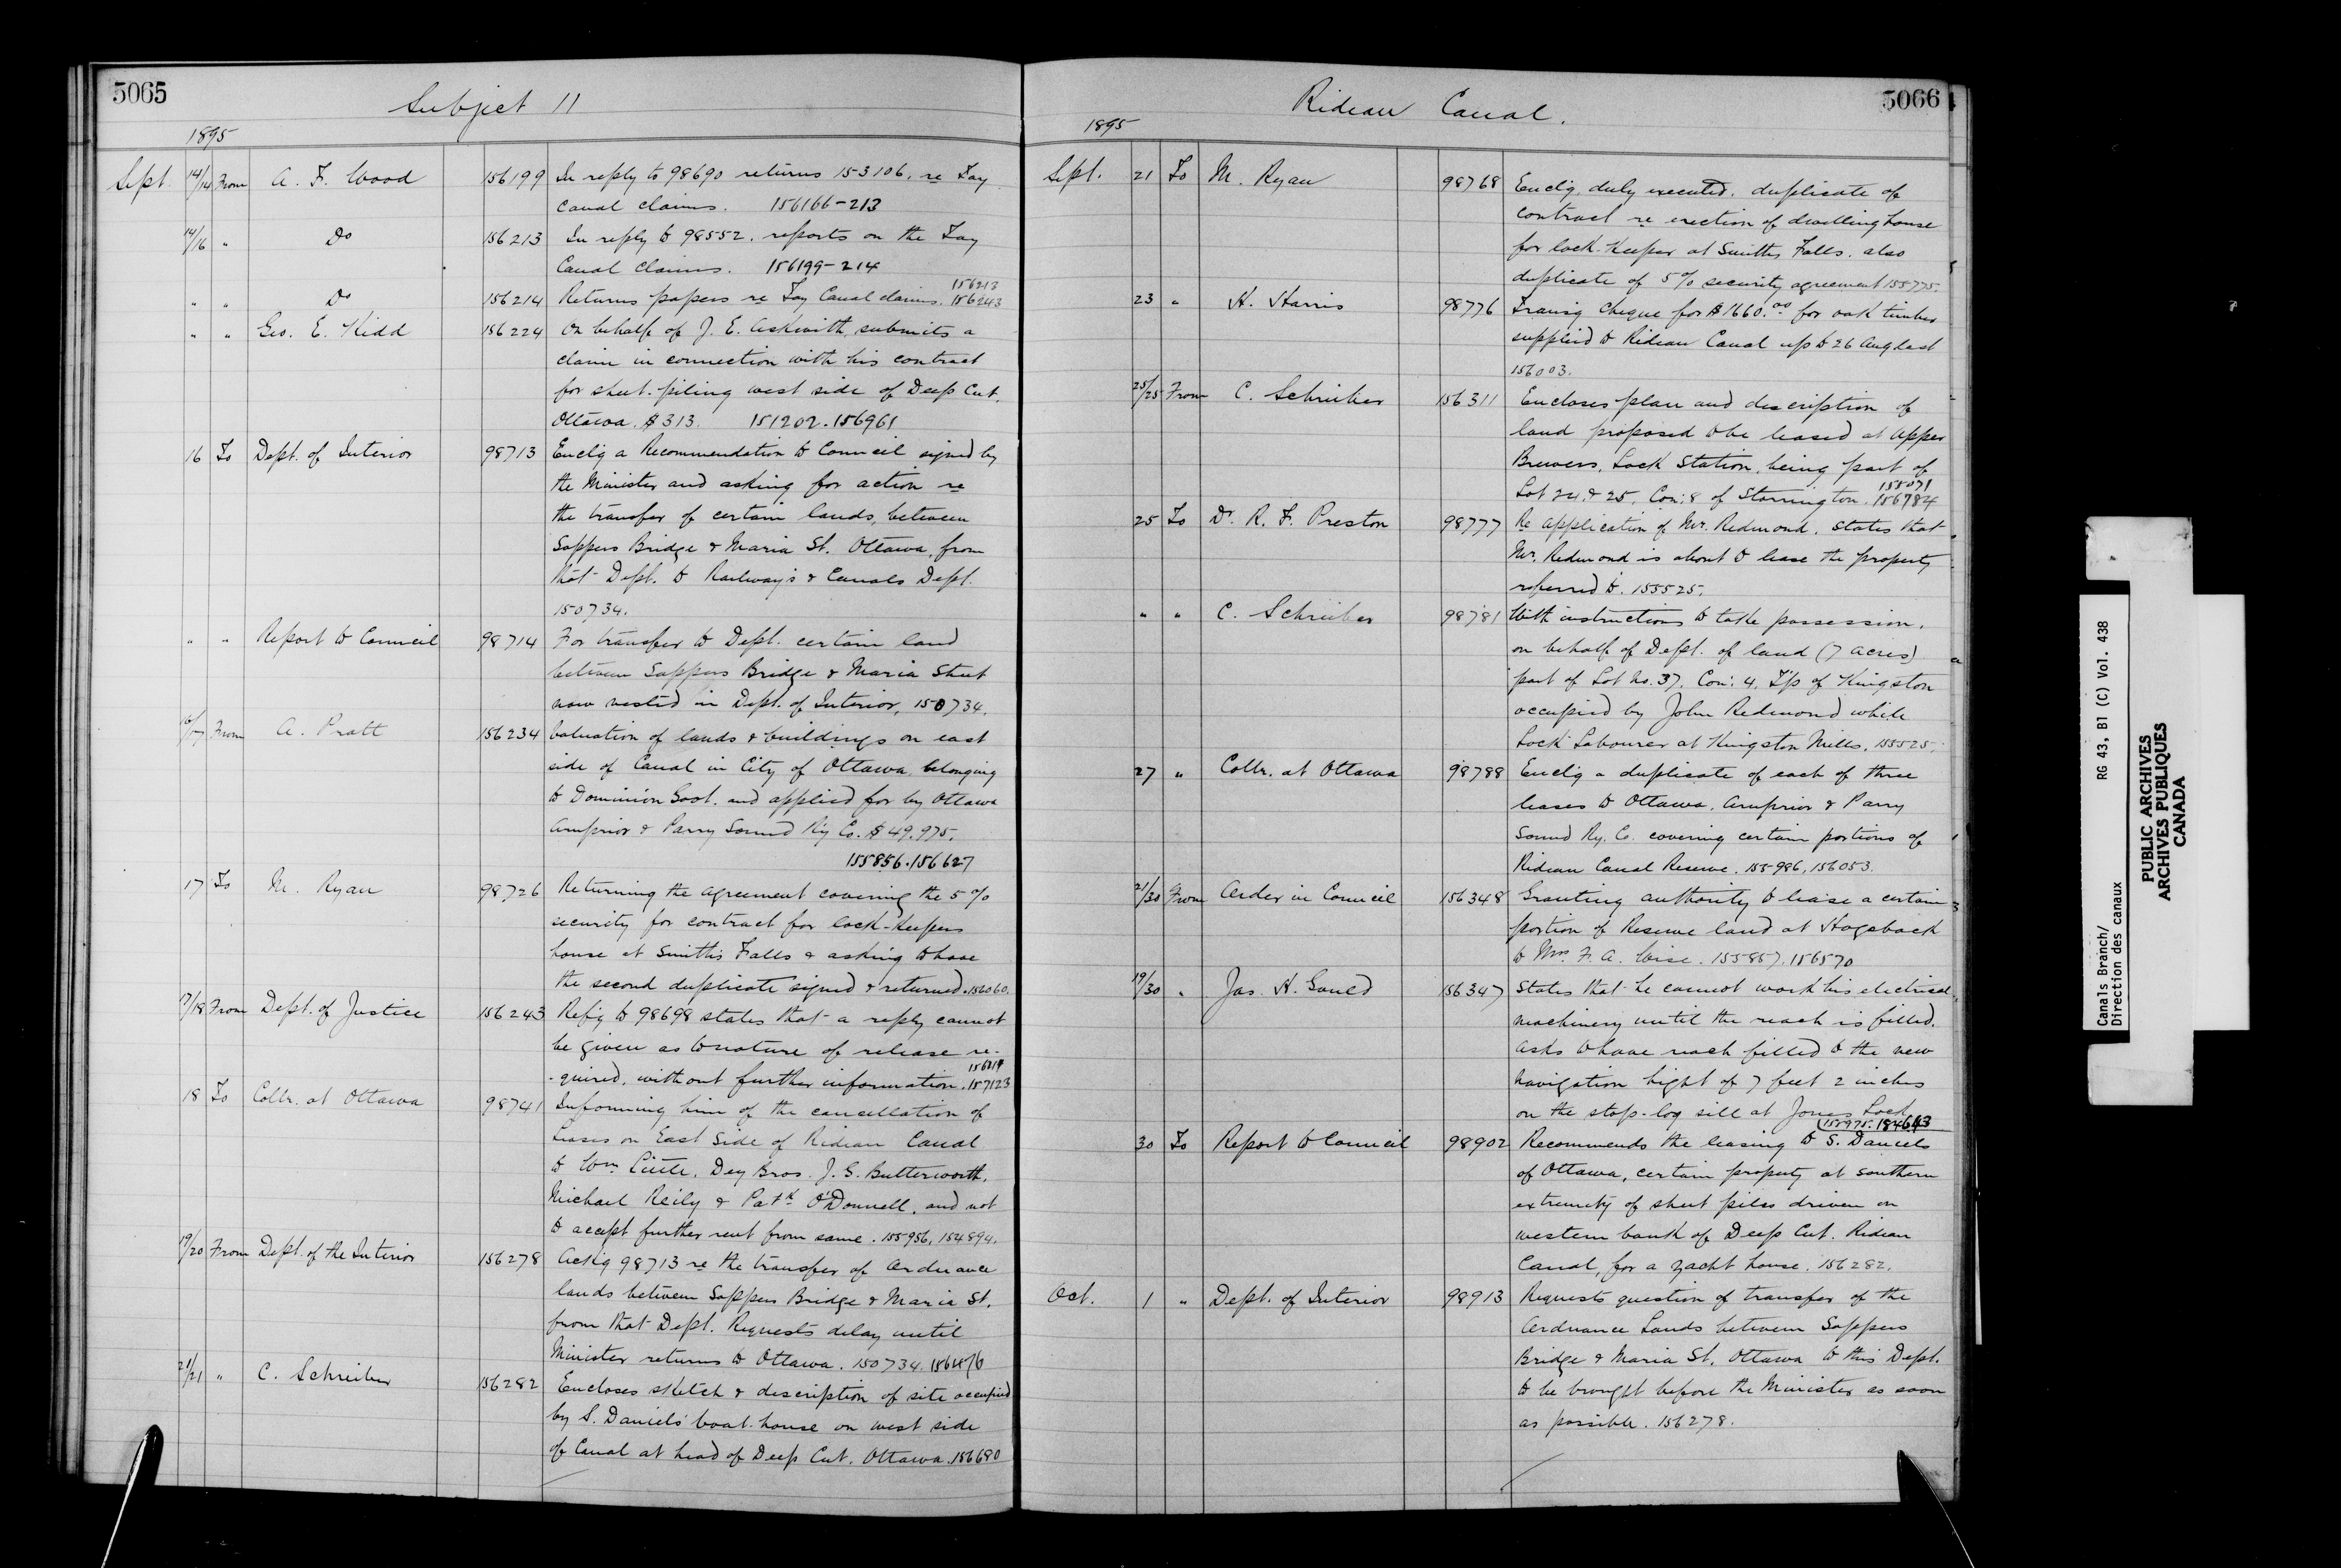 5065
Subject 11
1895
Sept. 14/14 From A. F. Wood 156199 In reply to 98690 returns 153106, re Tay
Canal claims. 156166-213
14/16 " Do 156213 In reply to 98552, reports on the Tay
Canal Claims. 156199-214
156213
" " Do 156214 Returns papers re Tay Canal claims. 156243
" " Geo. E. Kidd 156224 On behalf of J. E. Askwith, submits a
claim in connection with his contract
for sheet-piling west side of Deep Cut,
Ottawa. $313. 151202. 156961
16 To Dept. of Interior 98713 Enclg a Recommendation to Council signed by
the Minister and asking for action re
the transfer of certain lands, between
Sappers Bridge & Maria St. Ottawa, from
that Dept. to Railways & Canals Dept.
150734.
" " Report to Council 98714 For transfer to Dept. certain land
between Sappers Bridge & Maria Street
now vested in Dept. of Interior, 150734.
16/17 From A. Pratt 156234 Valuation of lands & buildings on east
side of Canal in City of Ottawa, belonging
to Dominion Govt. and applied for by Ottawa
Arnprior & Parry Sound Ry Co. $49.975.
155856. 156627
17 To M. Ryan 98726 Returning the agreement covering the 5%
security for contract for lock-keepers
house at Smith's Falls & asking to have
the second duplicate signed & returned. 156060.
17/18 From Dept. of Justice 156243 Refg to 98698 states that a reply cannot
be given as to nature of release re-
156214
-quired, without further information. 157123
18 To Collr. at Ottawa 98741 Informing him of the cancellation of
Leases on East Side of Rideau Canal
to Wm Little, Dey Bros. J. G. Butterworth,
Michael Reily & Patk O'Donnell, and not
to accept further rent from same. 155956, 154894.
19/20 From Dept. of the Interior 156278 Ackg 98713 re the transfer of Ordnance
lands between Sappers Bridge & Maria St.
from that Dept. Requests delay until
Minister returns to Ottawa. 150734.
21/21 " C. Schreiber 156282 Encloses sketch & description of site occupied
by S. Daniels' boat-house on west side
of Canal at head of Deep Cut. Ottawa. 156680
5066
Rideau Canal.
1895
Sept. 21 To M. Ryan 98768 Enclg, duly executed, duplicate of
contract re erection of dwelling house
for lock-keeper at Smiths Falls, also
duplicate of 5% security agreement 155775.
23 " H. Harris 98776 Transg Cheque for $1660.00 for oak timber
supplied to Rideau Canal up to 26 Aug last
156003.
25/25 From C. Schreiber 156311 Encloses plan and description of
land proposed to be leased at Upper
Brewers, Lock Station, being part of
155071
Lot 24 & 25, Con: 8 of Storrington. 156784
25 To Dr. R. F. Preston 98777 Re application of Mr. Redmond, states that
Mr. Redmond is about to lease the property
referred to. 155525.
" " C. Schreiber 98781 With instructions to take possession,
on behalf of Dept. of land (7 acres)
part of Lot No. 37, Con: 4, T'p of Kingston
occupied by John Redmond while
Lock Labourer at Kingston Mills, 155525.
27 " Collr. at Ottawa 98788 Enclg a duplicate of each of three
leases to Ottawa, Arnprior & Parry
Sound Ry. Co. covering certain portions of
Rideau Canal Reserve. 155986, 156053.
21/30 From Order in Council 156348 Granting authority to lease a certain
portion of Reserve land at Hogsback
to Mrs. F. A. Wise. 155857. 156570
19/30 " Jas. H. Gould 156347 States that he cannot work his electrical
machinery until the reach is filled.
Asks to have reach filled to the new
navigation hight of 7 feet 2 inches
on the stop-log sill at Jones Lock
155975. 184643
30 To Report to Council 98902 Recommends the leasing to S. Daniels
of Ottawa, certain property at southern
extremity of sheet piles driven on
western bank of Deep Cut. Rideau
Canal, for a yacht house. 156282.
Oct. 1 " Dept. of Interior 98913 Requests question of transfer of the
Ordnance Lands between Sappers
Bridge & Maria St. Ottawa to this Dept.
to be brought before the Minister as soon
as possible. 156278.
Canals Branch/ RG 43, B1 (C) Vol. 438
Direction des canaux
PUBLIC ARCHIVES
ARCHIVES PUBLIQUES
CANADA